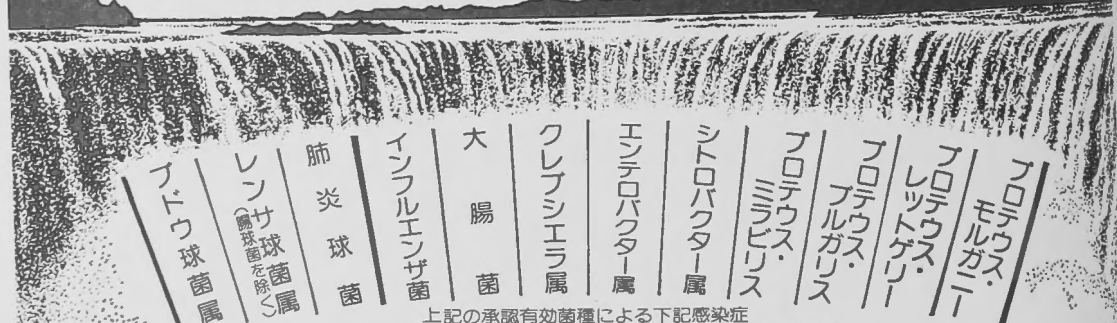 ブドウ球菌属
レンサ球菌属
(腸球菌を除く)
肺炎球菌
インフルエンザ菌
大腸菌
クレブシエラ属
エンテロバクター属
シトロバクター属
プロテウス・
ミラビリス
プロテウス・
ブルガリス
プロテウス・
レットゲリー
プロテウス・
モルガニー
上記の承認有効菌種による下記感染症